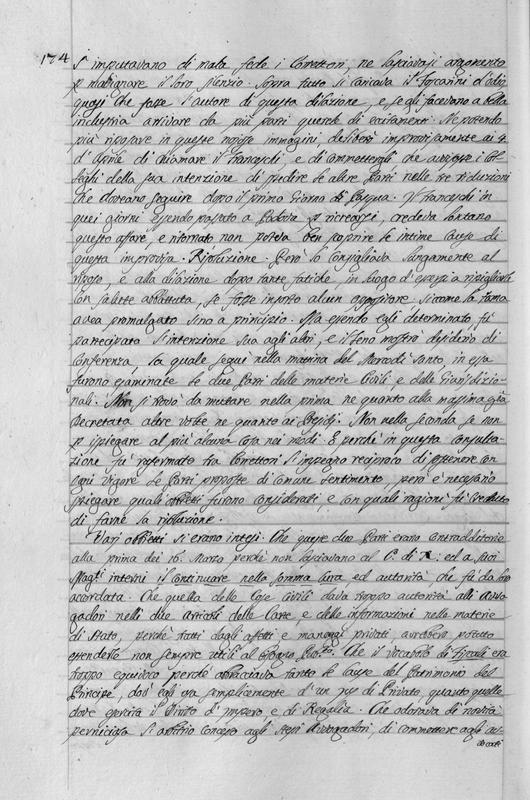 174
S'imputavano di mala fede i Correttori, ne lasciavasi argomento
p malignare il loro silenzio. Sopra tutto si caricava il Foscarini d'odio
quasi che fosse l'autore di questa dilazione, e se gli facevano a bella
industria arrivare da più parti querele ed eccitamenti. Ne potendo
più riposare in queste noiose immagini, deliberò improvisamente ai 9
d'Aprile di chiamare il Franceschi, e di commettergli che avvisasse i Col-
leghi della sua intenzione di spedire le altre Parti nelle tre riduzioni
che doveano seguire dopo il primo Giorno di Pasqua. Il Franceschi in
quei giorni essendo passato a Padova p ricrearsi, credeva lontano
questo affare, e ritornato non poteva ben scoprire le intime cause di
questa improvisa Risoluzione. Però lo consigliava lungamente al
riposo, e alla dilazione dopo tante fatiche, in luogo d'esporsi a ripigliarle
con salute abbattuta, se fosse insorto alcun oppositore, siccome la fama
avea promulgato sino a principio. Ma essendo egli determinato, fù
partecipata l'intenzione sua agli altri, e il Zeno mostrò desiderio di
Conferenza, la quale seguì nella mattina del Mercordì Santo, in essa
furono esaminate le due Parti delle materie Civili e delle Giurisdizio-
nali. Non si trovò da mutare nella prima ne quanto alla massima già
Decretata altre volte ne quanto ai Presidj. Non nella seconda se non
p ispiegare al più alcuna cosa nei modi. E perchè in questa consulta-
zione fù riaffermato tra Correttori l'impegno reciproco di sostenere con
ogni vigore le Parti proposte di comune sentimento, però è necessario
spiegare quali obbietti furono considerati, e con quali ragioni fù creduto
di farne la risoluzione.
Varj obbietti si erano intesi. Che queste due Parti erano contradditorie
alla prima dei 16. Marzo perchè non lasciavano al C. di X: ed a suoi
Magti interni il continuare nella forma sino ed autorità, che fù da loro
accordata. Che quella delle Cose Civili dava troppo autorità alli Avo-
gadori nelli due articoli delle Carte, e delle informazioni nelle materie
di Stato, perchè tratti dagli affetti e maneggi privati avrebbero potuto
estenderle non sempre utili al Riguardo Pubco. Che il vocabolo di Fiscali era
troppo equivoco perchè abbracciava tanto le Cause del Patrimonio del
Principe, dov'egli era simplicemente d'un jus di Privato, quanto quelle
dove esercita il Diritto d'Impero, e di Regalìa. Che odorava di novità
perniciosa l'arbitrio concesso agli stessi Avvogadori, di commettere agli av-
vocati